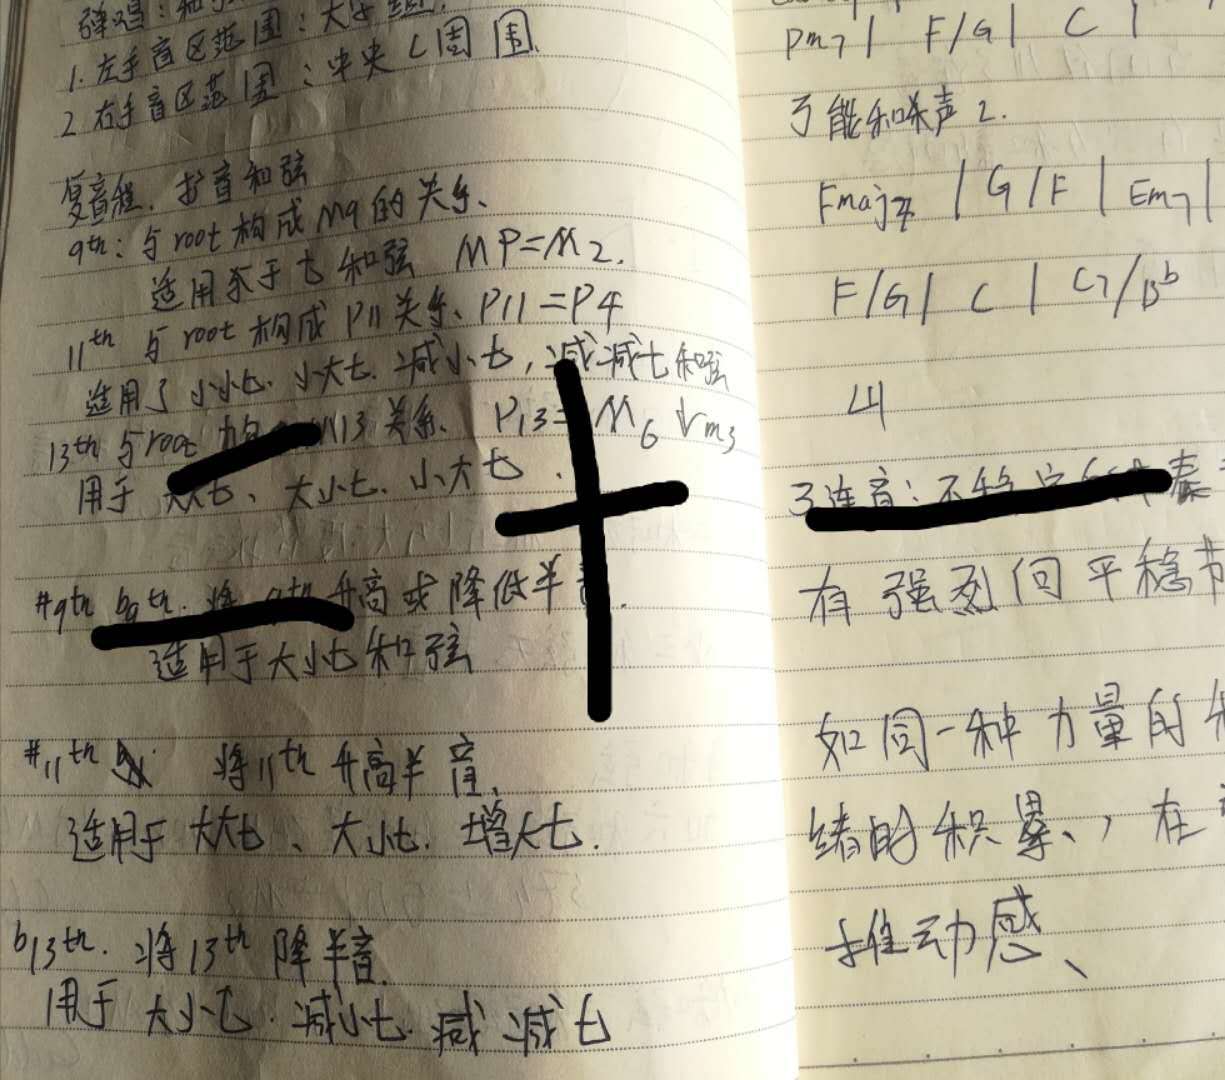 1. 左手音区范围：大字组.
2 右手音区范围：中央C周围.
复音程. 扩音和弦
9th: 与root构成M9的关系、
适用于七和弦 M9=M2.
11th 与root构成P11关系、P11=P4
适用于小小七. 小大七. 减小七, 减减七和弦
13th 与root 13关系. P13= M6 ↓m3
用于 大大七、大小七. 小大七.
#9th b9th. 升高或降低半
适用于大小七和弦
#11th 将11th升高半音、
适用于 大大七、大小七. 增大七.
b13th. 将13th降半音.
用于大小七. 减小七. 减减七
Dm7 | F/G | C |
万能和声2.
Fmaj7 | G/F | Em7 |
F/G | C | C7/Bb
3连音: 奏
有强烈回平稳节
如同一种力量的
绪的积累、, 在
推动感、